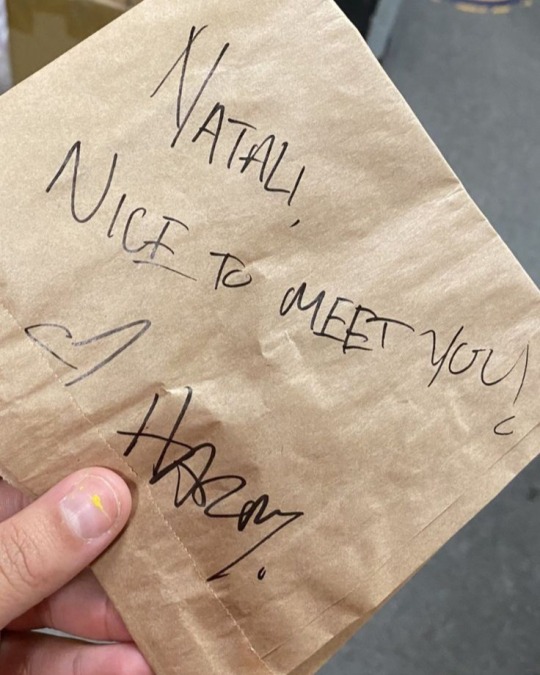 NATALI,
NICE TO MEET YOU!
HARRY.